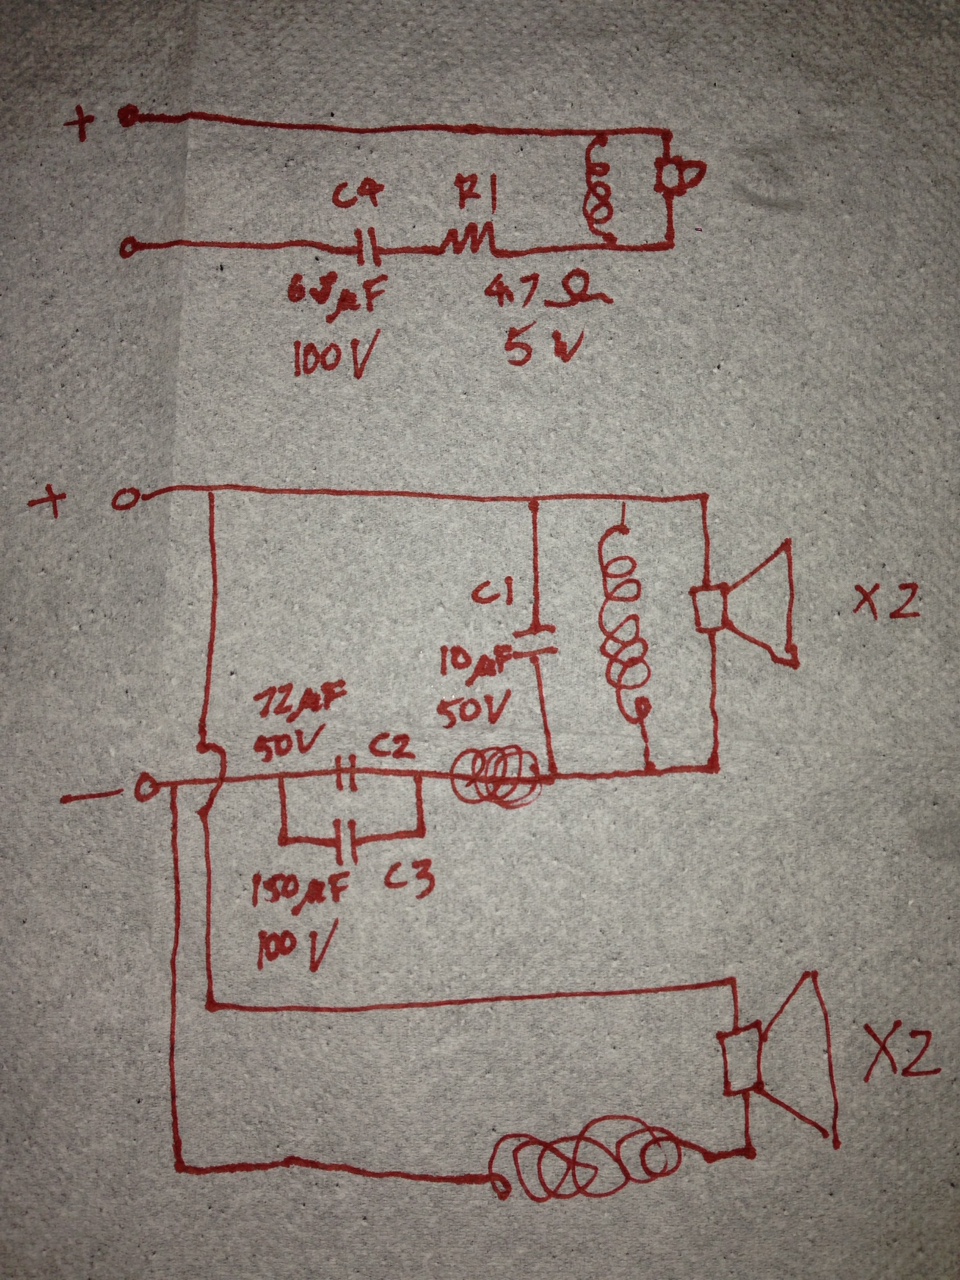 +
C4 R1
6.8µF 4.7Ω
100V 5W
+
C1
X2
10µF
50V
72µF
50V
C2
−
150µF
C3
100V
X2